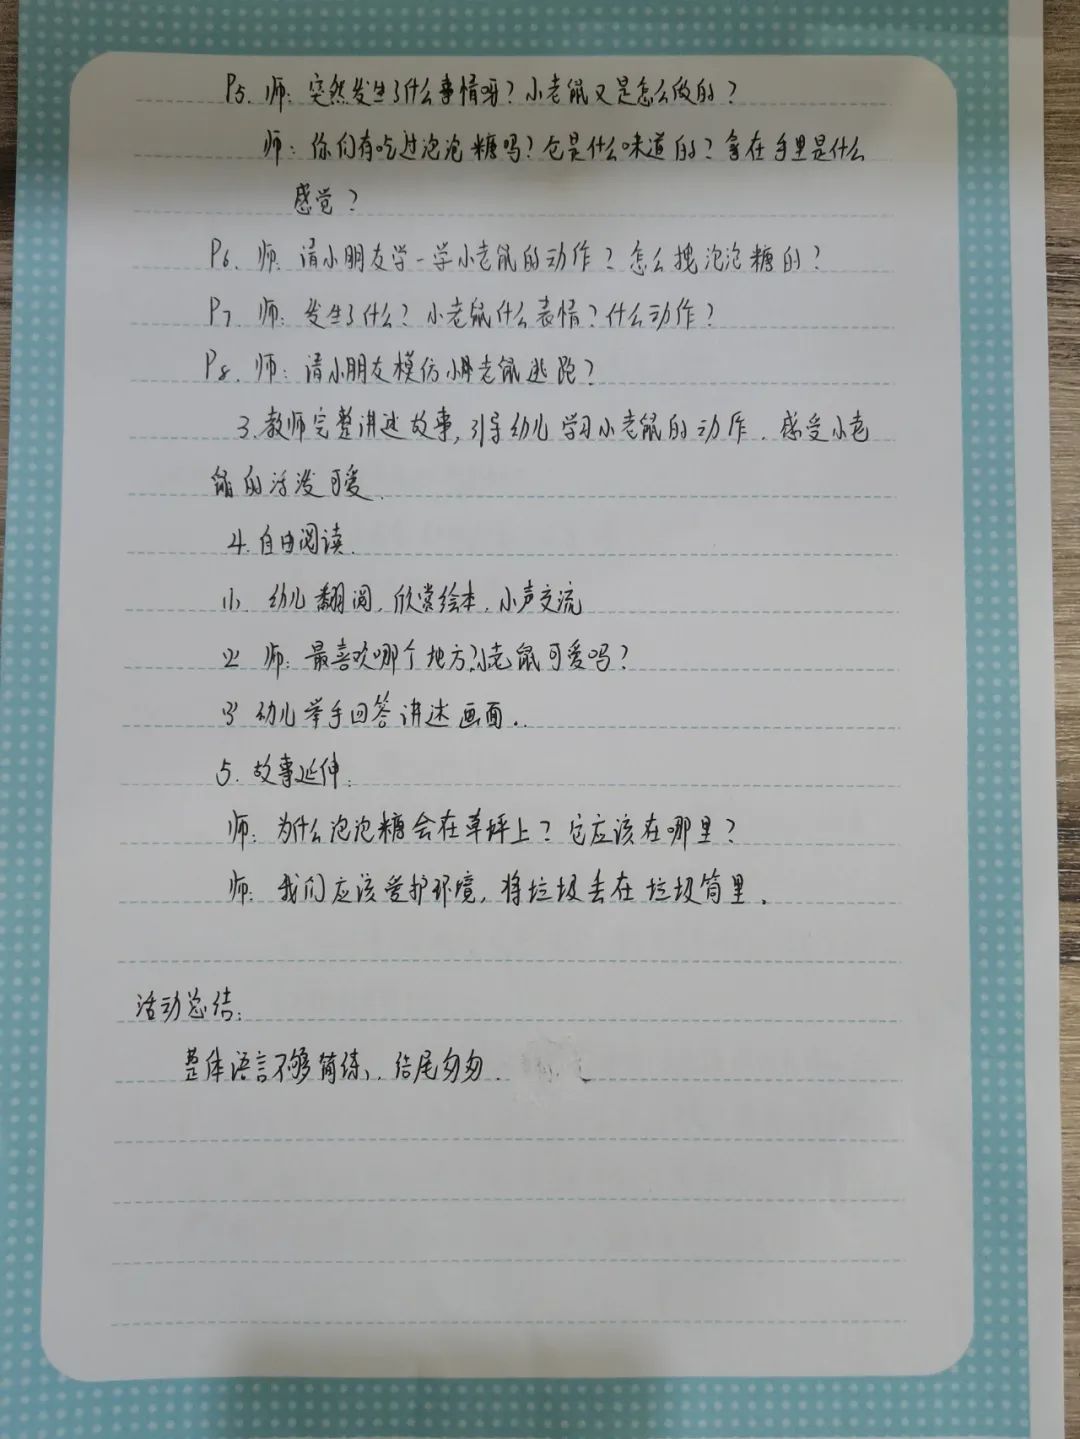 P5. 师: 突然发生了什么事情呀? 小老鼠又是怎么做的?
师: 你们有吃过泡泡糖吗? 它是什么味道的? 拿在手里是什么
感觉?
P6. 师: 请小朋友学一学小老鼠的动作? 怎么拽泡泡糖的?
P7. 师: 发生了什么? 小老鼠什么表情? 什么动作?
P8. 师: 请小朋友模仿小老鼠逃跑?
3. 教师完整讲述故事, 引导幼儿学习小老鼠的动作. 感受小老
鼠的活泼可爱.
4. 自由阅读.
(1) 幼儿翻阅, 欣赏绘本, 小声交流
(2) 师: 最喜欢哪个地方? 小老鼠可爱吗?
(3) 幼儿举手回答讲述画面..
5. 故事延伸:
师: 为什么泡泡糖会在草坪上? 它应该在哪里?
师: 我们应该爱护环境, 将垃圾丢在垃圾筒里.
活动总结:
整体语言不够简练, 结尾匆匆.